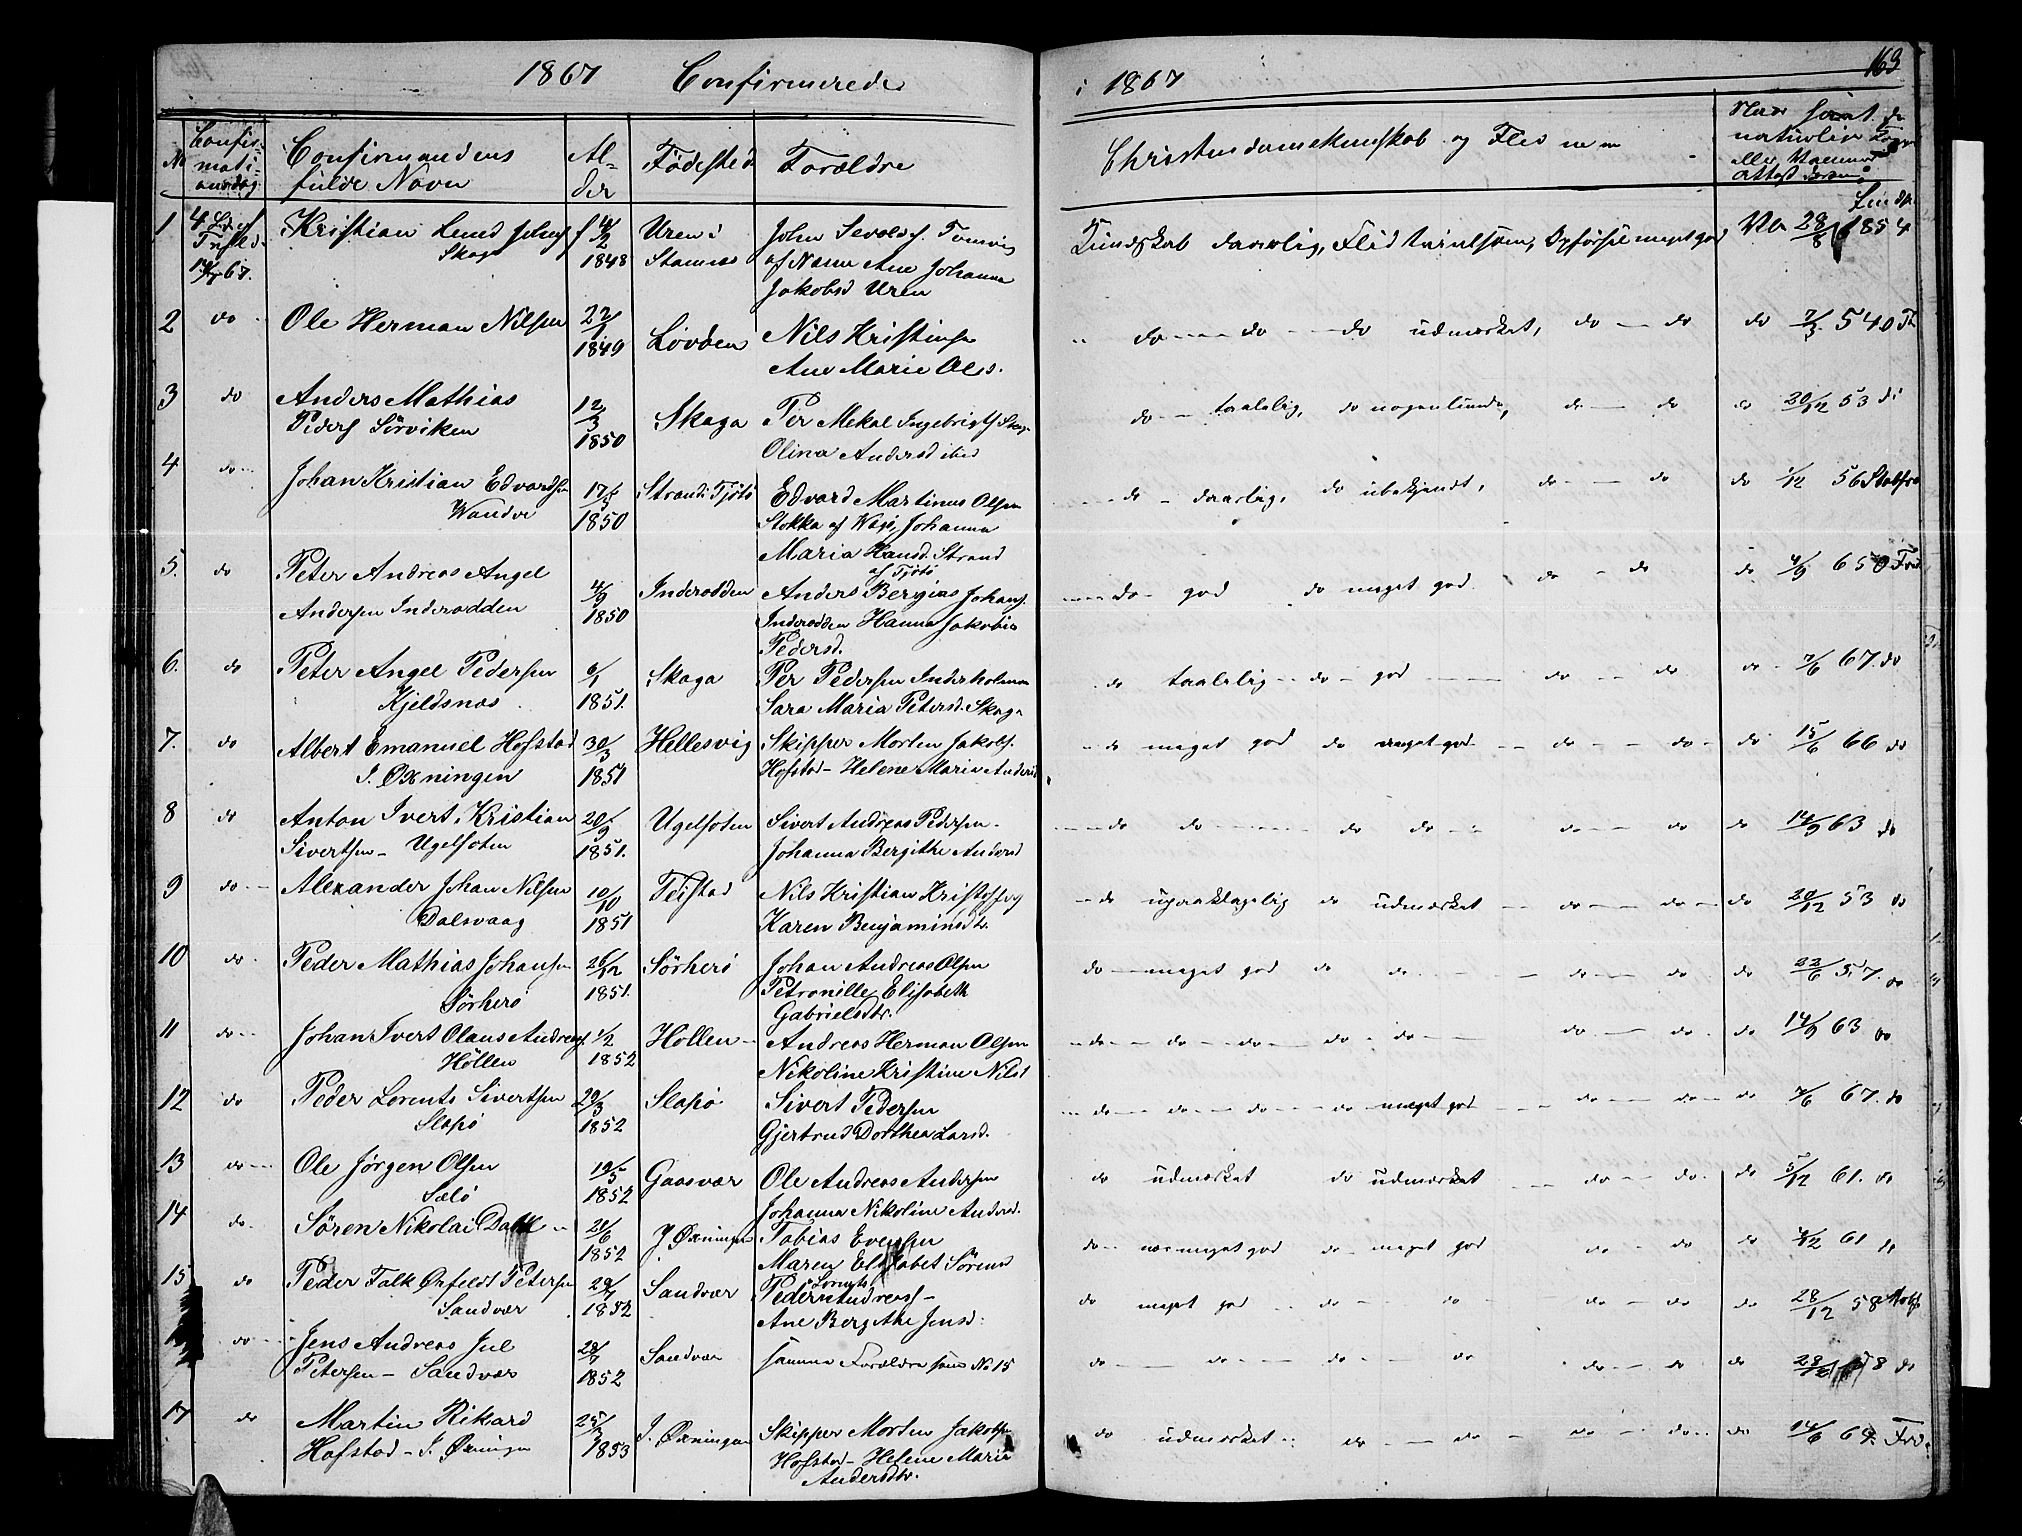 1867 Confirmerede
i 1867
163
No
Confir-
mati-
onsdag
Confirmandens
fulde Navn
Al-
der
Fødested
Forældre
Christendomskundskab og Flid
naturlige
eller Vaccine
Attest
1
Kristian Lund Johns
Skaga
1848
Uren i
Stamnes
John
Ane Johanna
Jakobsd Uren
Kundskab daarlig, Flid tvivlsom, Opførsel meget god
28/8 1854
2 do Ole Herman Nilsen 22/1 1849 Lovden Nils Kristiansen
Ane Marie Ols.
do do do udmærket, do do do 7/3 54
3 do Anders Mathias
Peders Sörviken
12/3 1850 Skaga Per Mekal Ingebrigts
Olina Andersd ibid
do taalelig, do nogenlunde, do do do 20/12 53 do
4 do Johan Kristian Edvardsen
Wandve
17/5 1850 Strand i Tjötö Edvard Martinus Olsen
Stokka af Wegö, Johanna
Maria Hansd. Strand
af Tjötö
do daarlig, do ubekjendt, do do do 1/12 56
5. do Peter Andreas Angel
Andersen Inderodden
4/9 1850 Inderodden Anders Bergias Johans.
Inderodden Hanna Jakobia
Pedersd.
do god do meget god do do do 4/9 65
6. do Peter Angel Pedersen
Kjeldsnæs
6/1 1851. Skaga Per Pedersen Inderholmen
Sara Maria Petersd. Skaga
do taalelig do god do do do 7/6 67. do
7. do Albert Emanuel Hofstad
I. Øxningen
30/3 1851 Hellesvig Skipper Morten Jakobs.
Hofstad - Helene Maria Andersd
do meget god do meget god do do do 15/6 66 do
8 do Anton Ivert Kristian
Sivertsen - Ugelfoten
20/9 1851. Ugelfoten Sivert Andreas Pedersen -
Johanna Bergithe Andersd
do do do do do do do 14/9 63 do
9 do Alexander Johan Nilsen
Dalsvaag
10/10 1851 Teistad Nils Kristian Kristoffers
Karen Benjaminsdtr.
do upaaklagelig do udmærket do do do 20/12 53 do
10 do Peder Mathias Johansen
Sörherö
26/12 1851. Sörherö Johan Andreas Olsen
Petronille Elisabeth
Gabrielsdtr.
do meget god do do do do do 22/6 57. do
11 do Johan Ivert Olaus Andreas.
Höllen
1/2 1852 Hollen Andreas Herman Olsen
Nikoline Kristine Nilsd
do do do do do do do do 14/9 63 do
12 do Peder Lorents Sivertsen
Slapö
29/3 1852 Slapö Sivert Pedersen
Gjertrud Dorthea Larsd.
do do do do meget god do do do 7/6 67. do
13 do Ole Jörgen Olsen
Sælö
19/5 1852 Gaasvær Ole Andreas Andersen
Johanna Nikoline Andersd.
do udmærket do udmærket do do do 5/12 61. do
14 do Sören Nikolai Dahl
21/6 1852 I Øxningen Tobias Evensen
Maren Elisabet Sörensd
do næsmeget god do meget god do do 61 do
15 do Peder Falk Orfeldt Petersen
Sandvær
29/7 1852 Sandvær Lorents
Peder Andreas -
Ane Bergithe Jensd.
do meget god do do do do do 28/12 58
do Jens Andreas Jul
Petersen - Sandvær
29/7 1852 Sandvær samme Forældre som No 15
do do do do do do do 28/12 58 do
17 do Martin Rikard
Hofstad - I. Øxningen
25/3 1853 I. Øxningen Skipper Morten Jakobsen
Hofstad - Helene Maria
Andersdtr.
do udmærket do do do do do 14/6